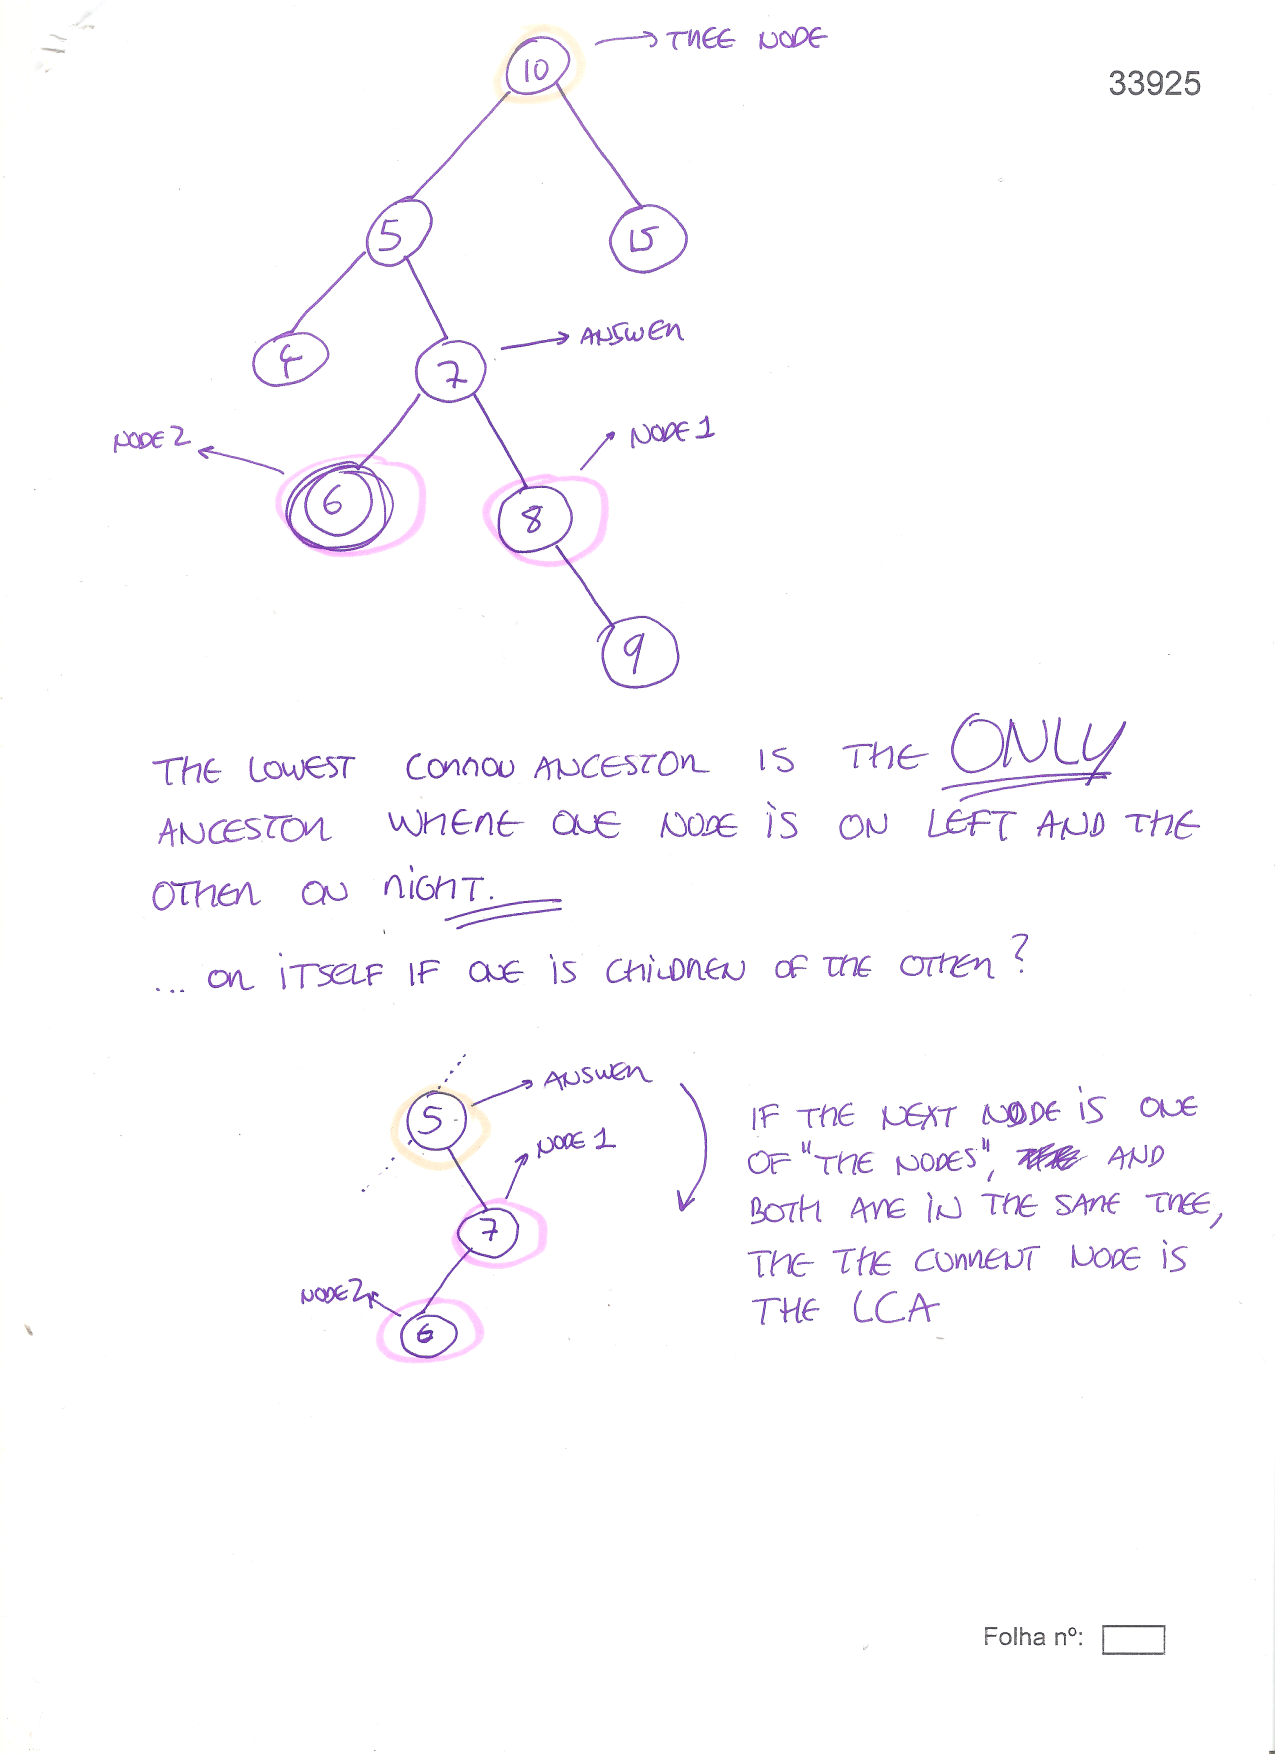 10 → TREE NODE
33925
5
15
4
7 → ANSWER
NODE 2
NODE 1
6
8
9
THE LOWEST COMMON ANCESTOR IS THE ONLY
ANCESTOR WHERE ONE NODE IS ON LEFT AND THE
OTHER ON RIGHT.
... OR ITSELF IF ONE IS CHILDREN OF THE OTHER?
5 → ANSWER
NODE 1
7
NODE 2
6
IF THE NEXT NODE IS ONE
OF "THE NODES", AND
BOTH ARE IN THE SAME TREE,
THE THE CURRENT NODE IS
THE LCA
Folha nº: